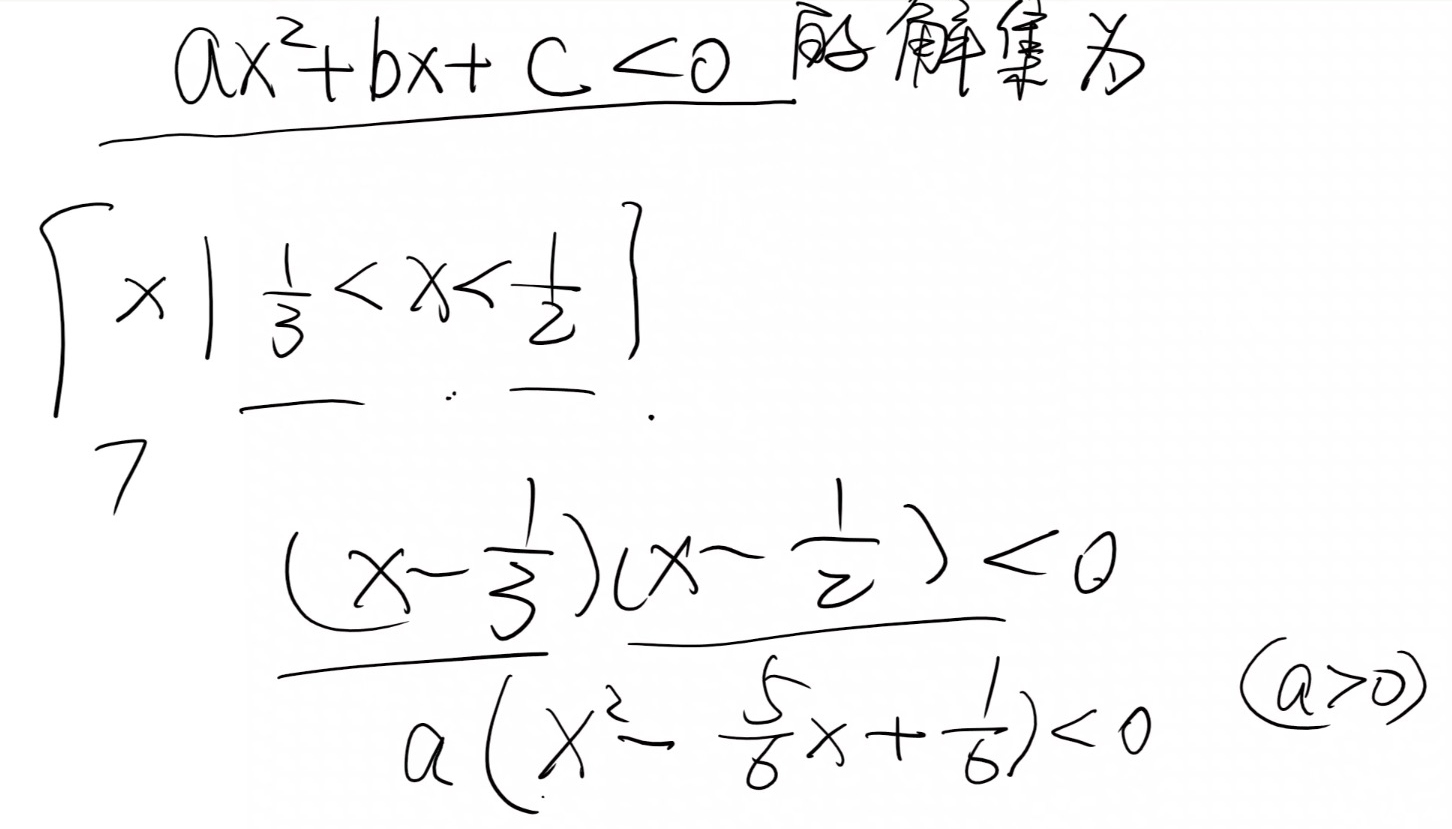 ax²+bx+c<0 的解集为
{x | 1/3 < x < 1/2}.
7
(x-1/3)(x-1/2)<0
a(x²-5/6x+1/6)<0 (a>0)